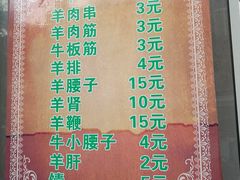 羊肉串 3元
羊肉筋 3元
牛板筋 3元
羊排 4元
羊腰子 15元
羊肾 10元
羊鞭 15元
牛小腰子 4元
羊肝 2元
5元